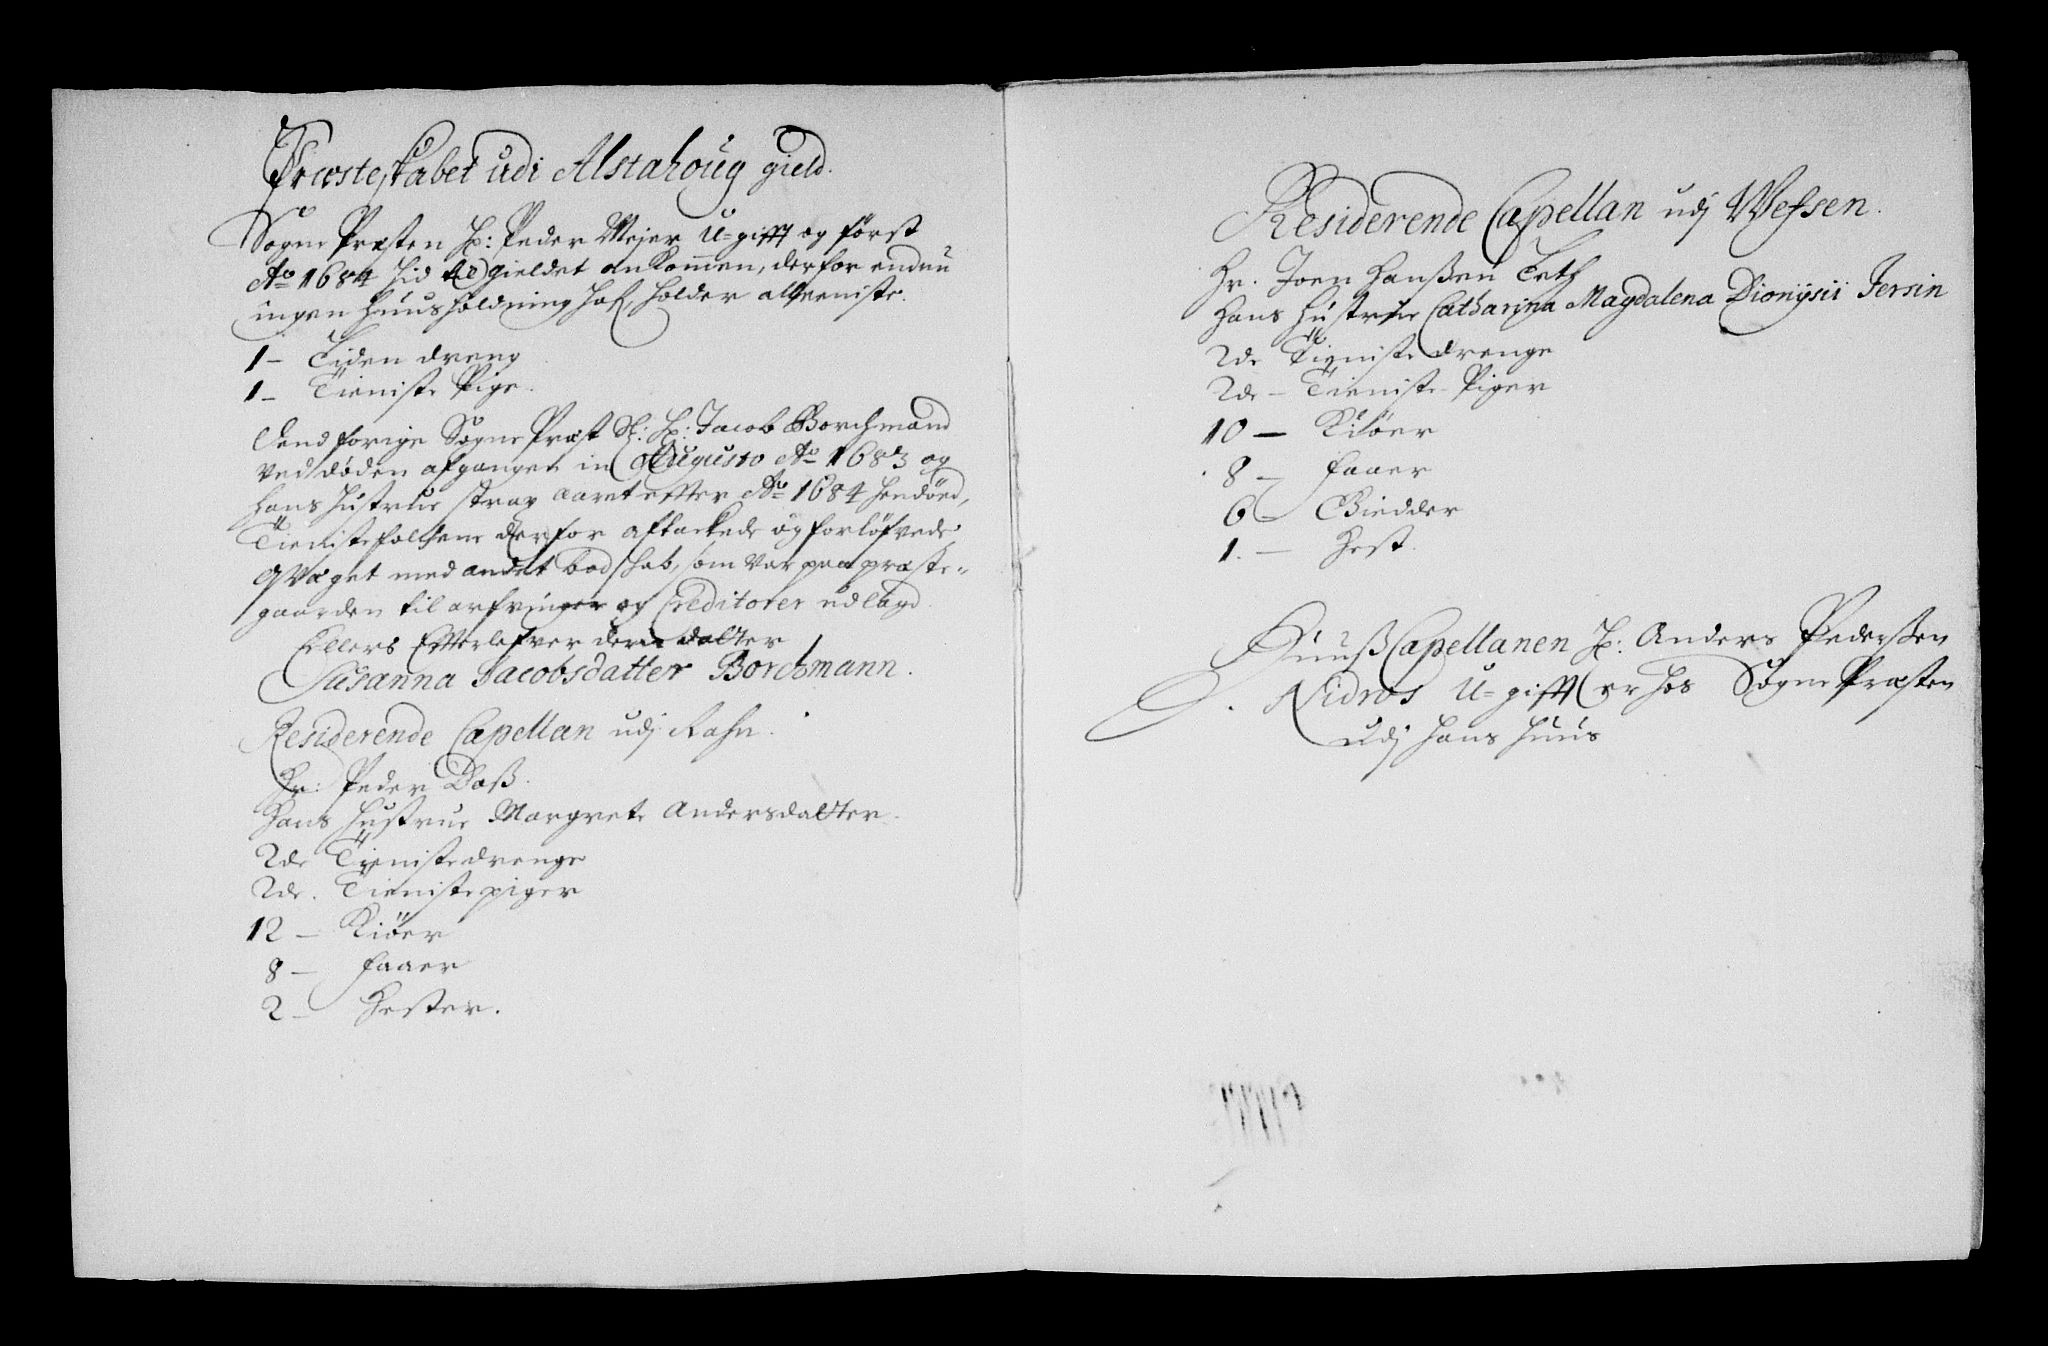 Præsteskabet udi Alstahoug gield.
Sogne Præsten H: Peder Mejer U=gifft og først
Ao 1684 hid til gieldet ankommen, derfor endnu
ingen huusholdning haf holder alleeniste.
1 - Liden dreng
1 - Tieniste Pige.
Dend forige Sogne Præst Sl: H: Jacob Borchmand
ved døden afgangen in Augusto Ao 1683 og
hans hustrue strax aaret efter Ao 1684 hendøed,
Tienistefolchene derfor aftackede og forløfvede,
Qvæget med andet bodschab, som var paa præste-
gaarden til arfvinger og Creditorer udlagd.
Ellers Efterlefver deris datter
Susanna Jacobsdatter Borchmann.
Residerende Capellan udj Rahn.
Hr: Peder Daß.
Hans hustrue Margrete Andersdatter.
2de Tieniste drenge
2de. Tieniste piger
12 - Kiöer
8 - faaer
2 - Hester.
Residerende Capellan udj Wefsen.
Hr. Joen Hanßen Teth
Hans Hustrue Catharina Magdalena Dionÿsii Jersin
2de Tieniste drenge
2de - Tieniste Piger
10 - Kiöer
8 - faaer
6 - Giedder
1. - Hest.
Huuß Capellanen H: Anders Pederßen
Nidros U=gifft er hos Sogne Præsten
udj hans huus